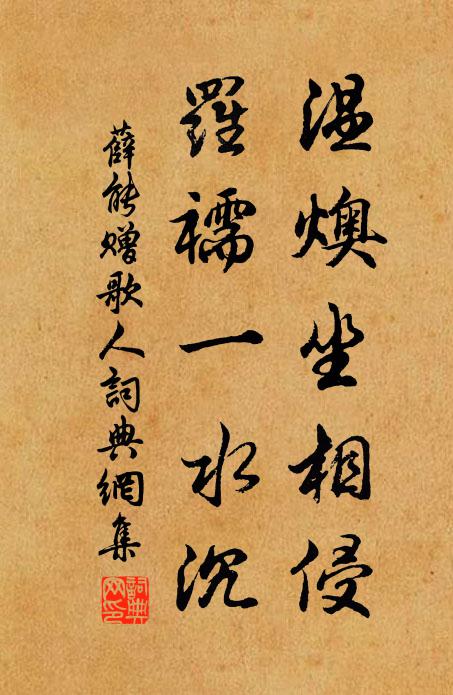 温燠坐相侵
羅襦一水沉
薛能贈歌人詞典網集
詞典網印